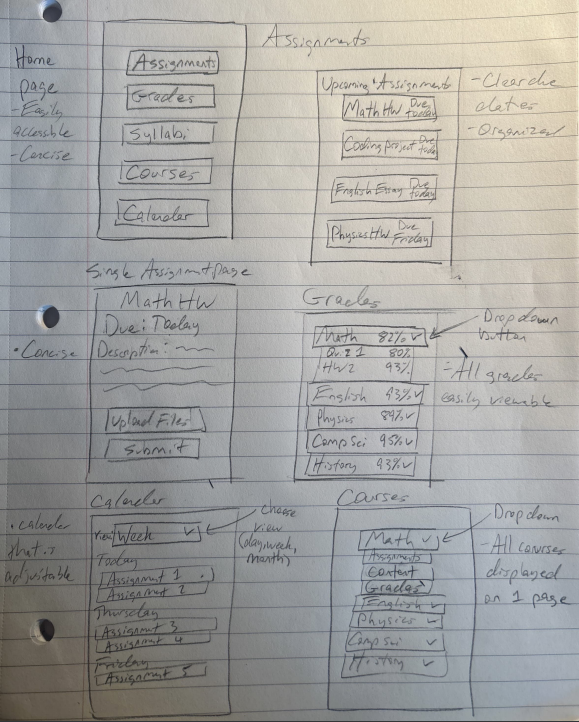 Home
page
- Easily
accessible
- Concise
Assignments
Grades
Syllabi
Courses
Calendar
Assignments
Upcoming Assignments
Math HW Due Today
Coding project Due Today
English Essay Due Today
Physics HW Due Friday
- Clear due
dates
- Organized
Single Assignment page
• Concise
Math HW
Due: Today
Description:
Upload Files
Submit
Grades
Math 82%
Quiz 1 80%
HW2 93%
English 93%
Physics 89%
Comp Sci 95%
History 93%
Dropdown
button
- All grades
easily viewable
Calendar
• calendar
that is
adjustable
view Week
Today
Assignment 1
Assignment 2
Thursday
Assignment 3
Assignment 4
Friday
Assignment 5
Choose
view
(day, week,
month)
Courses
Math
Assignments
Content
Grades
English
Physics
Comp Sci
History
Dropdown
- All courses
displayed
on 1 page